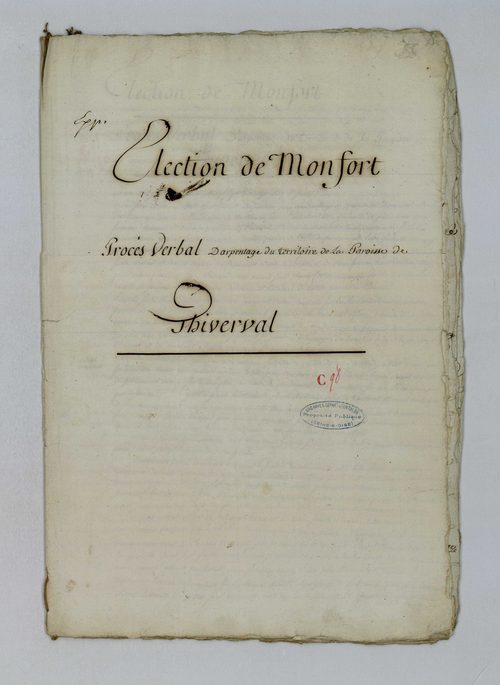 Exp.
Election de Monfort
Procès Verbal D'arpentage du territoire de la Paroisse de
Thiverval
C 98
Propriété Publique